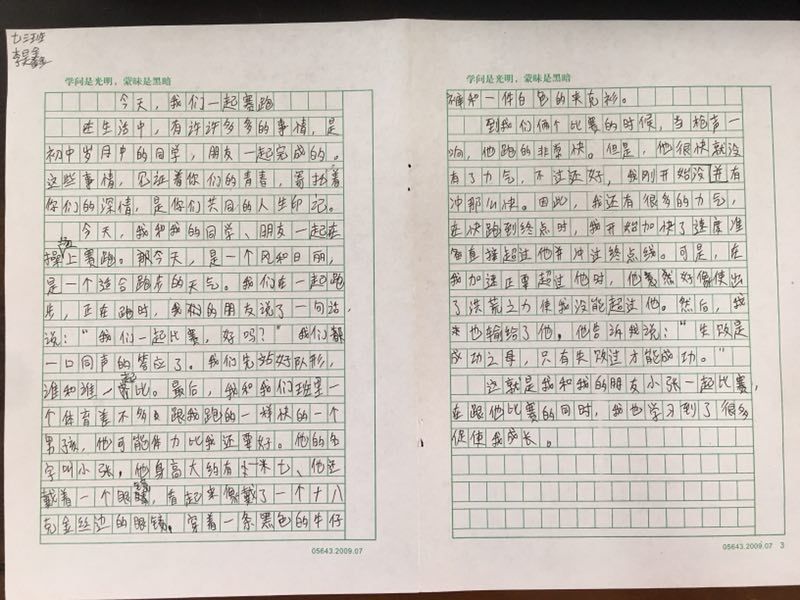 七三班
李昊鑫
学问是光明，蒙昧是黑暗
今天，我们一起赛跑
在生活中，有许许多多的事情，是
初中岁月中的同学，朋友一起完成的。
这些事情，见证着你们的青春，寄托着
你们的深情，是你们共同的人生印记。
今天，我和我的同学、朋友一起在
操场上赛跑。那今天，是一个风和日丽，
是一个适合跑步的天气。我们在一起跑
步，正在跑时，我的朋友说了一句话，
说：“我们一起比赛，好吗？”我们都
一口同声的答应了。我们先站好队形，
谁和谁一起比。最后，我和我们班里一
个体育差不多跟我跑的一样快的一个
男孩，他可能体力比我还要好。他的名
字叫小张，他身高大约有一米七、他还
戴着一个眼镜，看起来像戴了一个十八
克金丝边的眼镜，穿着一条黑色的牛仔
05643.2009.07
学问是光明，蒙昧是黑暗
裤和一件白色的夹克衫。
到我们俩个比赛的时候，当枪声一
响，他跑的非常快。但是，他很快就没
有了力气，不过还好，我刚开始没并有
冲那么快。因此，我还有很多的力气，
在快跑到终点时，我开始加快了速度准
备直接超过他并冲过终点线。可是，在
我加速正要超过他时，他竟然好像使出
了洪荒之力使我没能超过他。然后，我
来也输给了他。他告诉我说：“失败是
成功之母，只有失败过才能成功。”
这就是我和我的朋友小张一起比赛，
在跟他比赛的同时，我也学习到了很多
促使我成长。
05643.2009.07 3